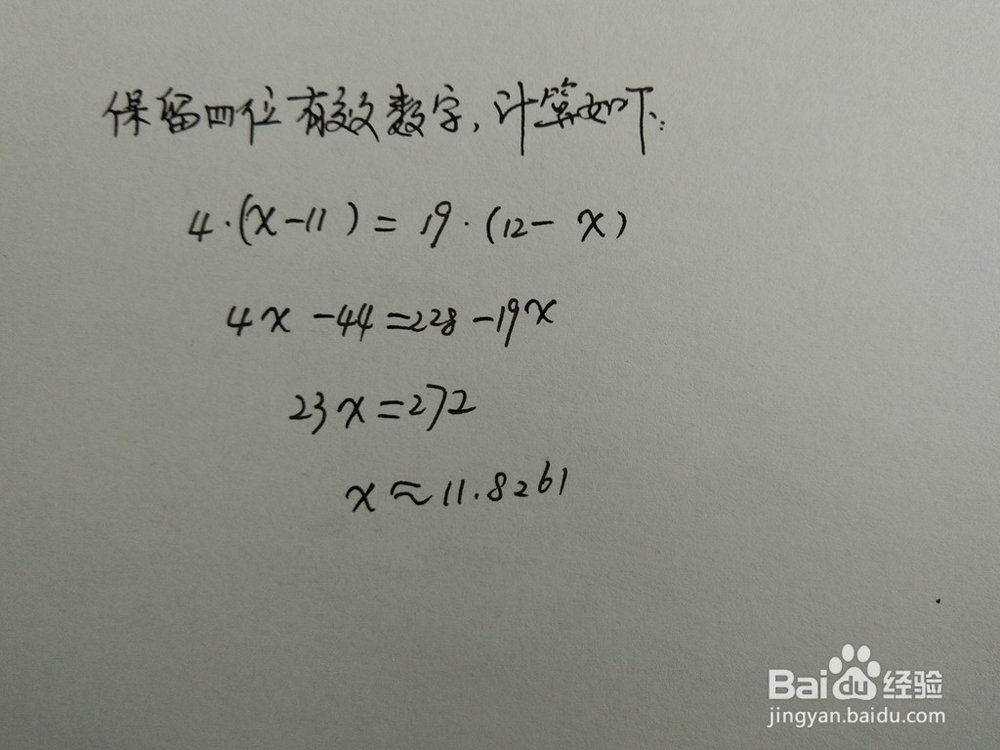 保留四位有效数字,计算如下:
4·(x-11)=19·(12-x)
4x-44=228-19x
23x=272
x≈11.8261
Baidu经验
jingyan.baidu.com